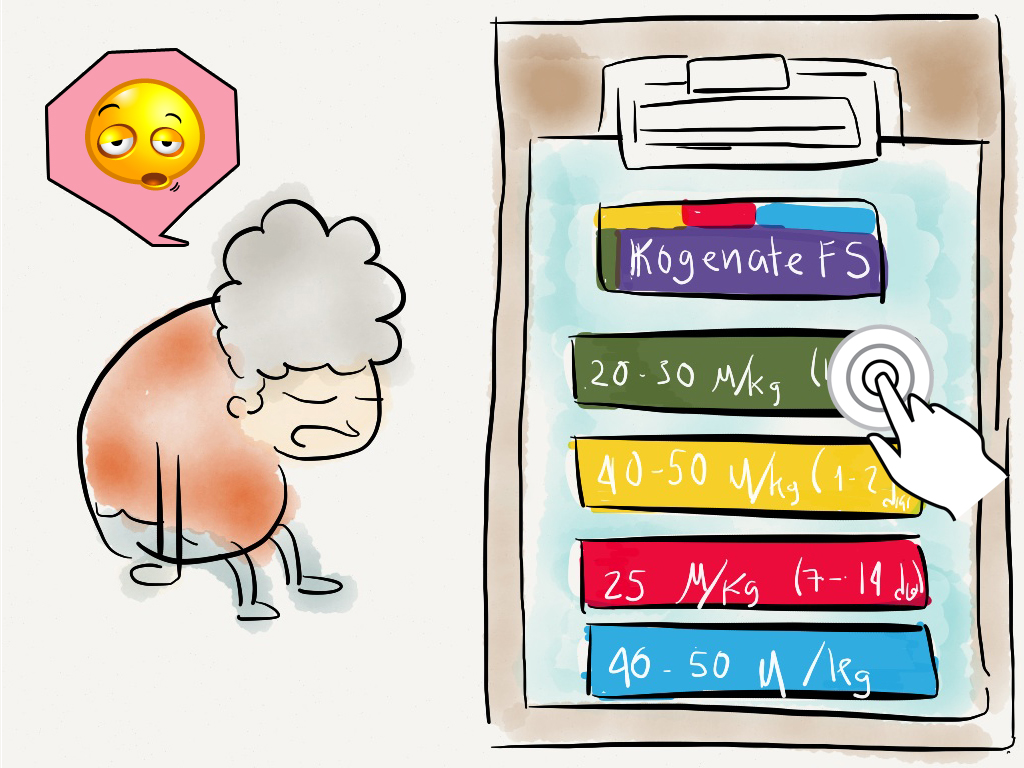 Kogenate FS
20-30 U/kg (1
40-50 U/kg (1-2
25 U/kg (7-14
40-50 U/kg